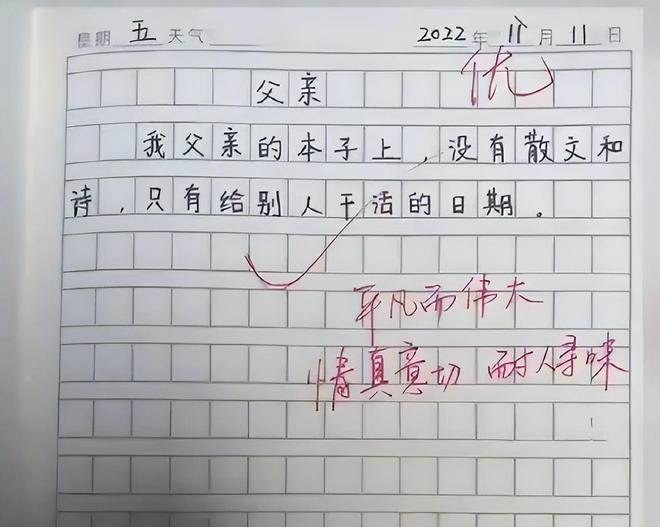 星期 五 天气 2022 年 11 月 11 日
父亲 优
我父亲的本子上，没有散文和
诗，只有给别人干活的日期。
平凡而伟大
情真意切 耐人寻味